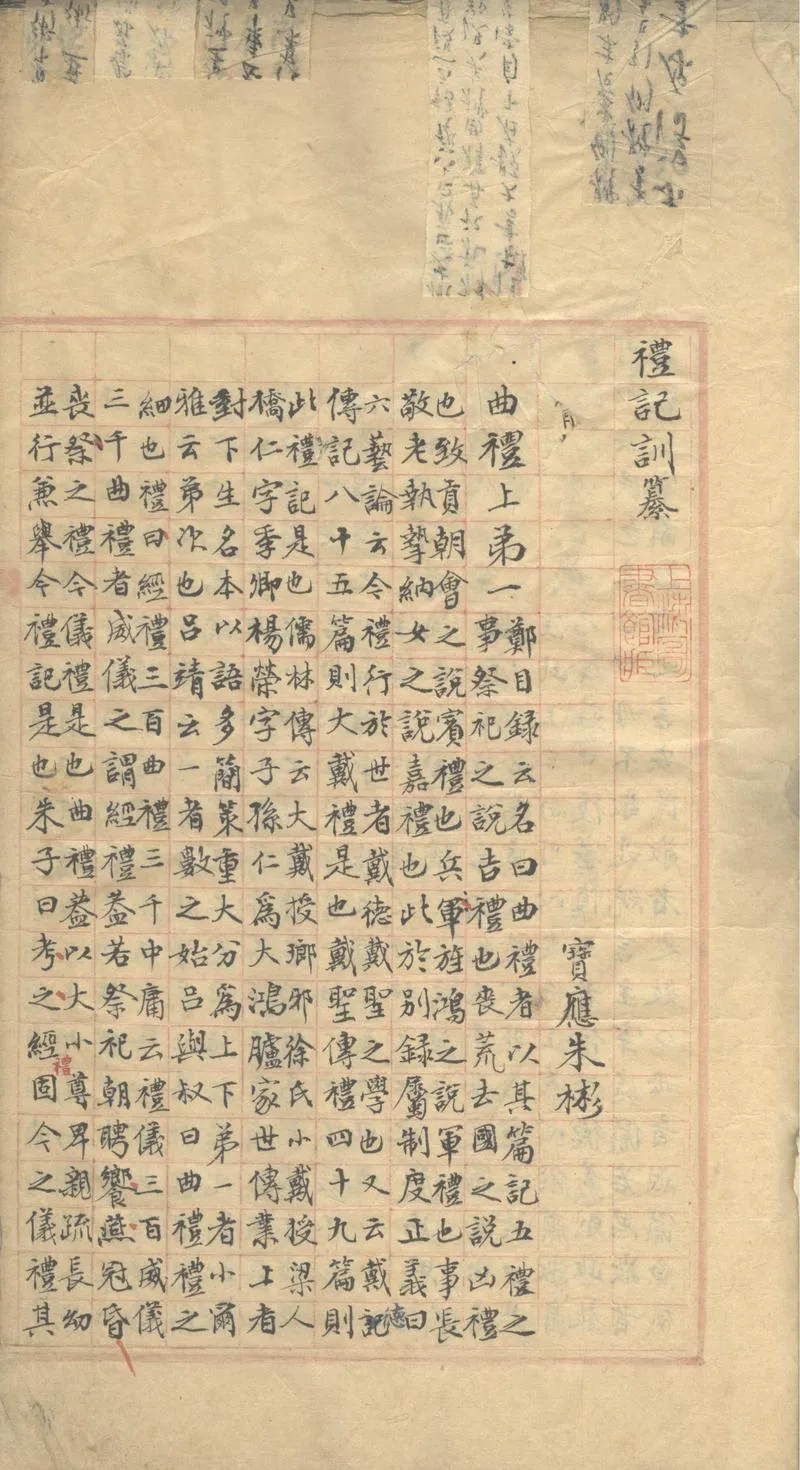 禮記訓纂
寶應朱彬
曲禮上弟一
鄭目録云名曰曲禮者以其篇記五禮之
事祭祀之說吉禮也喪荒去國之說凶禮
也致貢朝會之說賓禮也兵軍旌鴻之說軍禮也事長
敬老執摯納女之說嘉禮也此於別録屬制度正義曰
六藝論云今禮行於世者戴德戴聖之學也又云戴德記
傳記八十五篇則大戴禮是也戴聖傳禮四十九篇則
此禮記是也儒林傳云大戴授瑯邪徐氏小戴授梁人
橋仁字季卿楊榮字子孫仁爲大鴻臚家世傳業上者
對下生名本以語多簡策重大分爲上下弟一者小爾
雅云弟次也呂靖云一者數之始呂與叔曰曲禮禮之
細也禮曰經禮三百曲禮三千中庸云禮儀三百威儀
三千曲禮者威儀之謂經禮葢若祭祀朝聘饗燕冠昏
喪祭之禮今儀禮是也曲禮葢以大小尊卑親疏長幼
並行兼舉今禮記是也朱子曰考之經禮固今之儀禮其